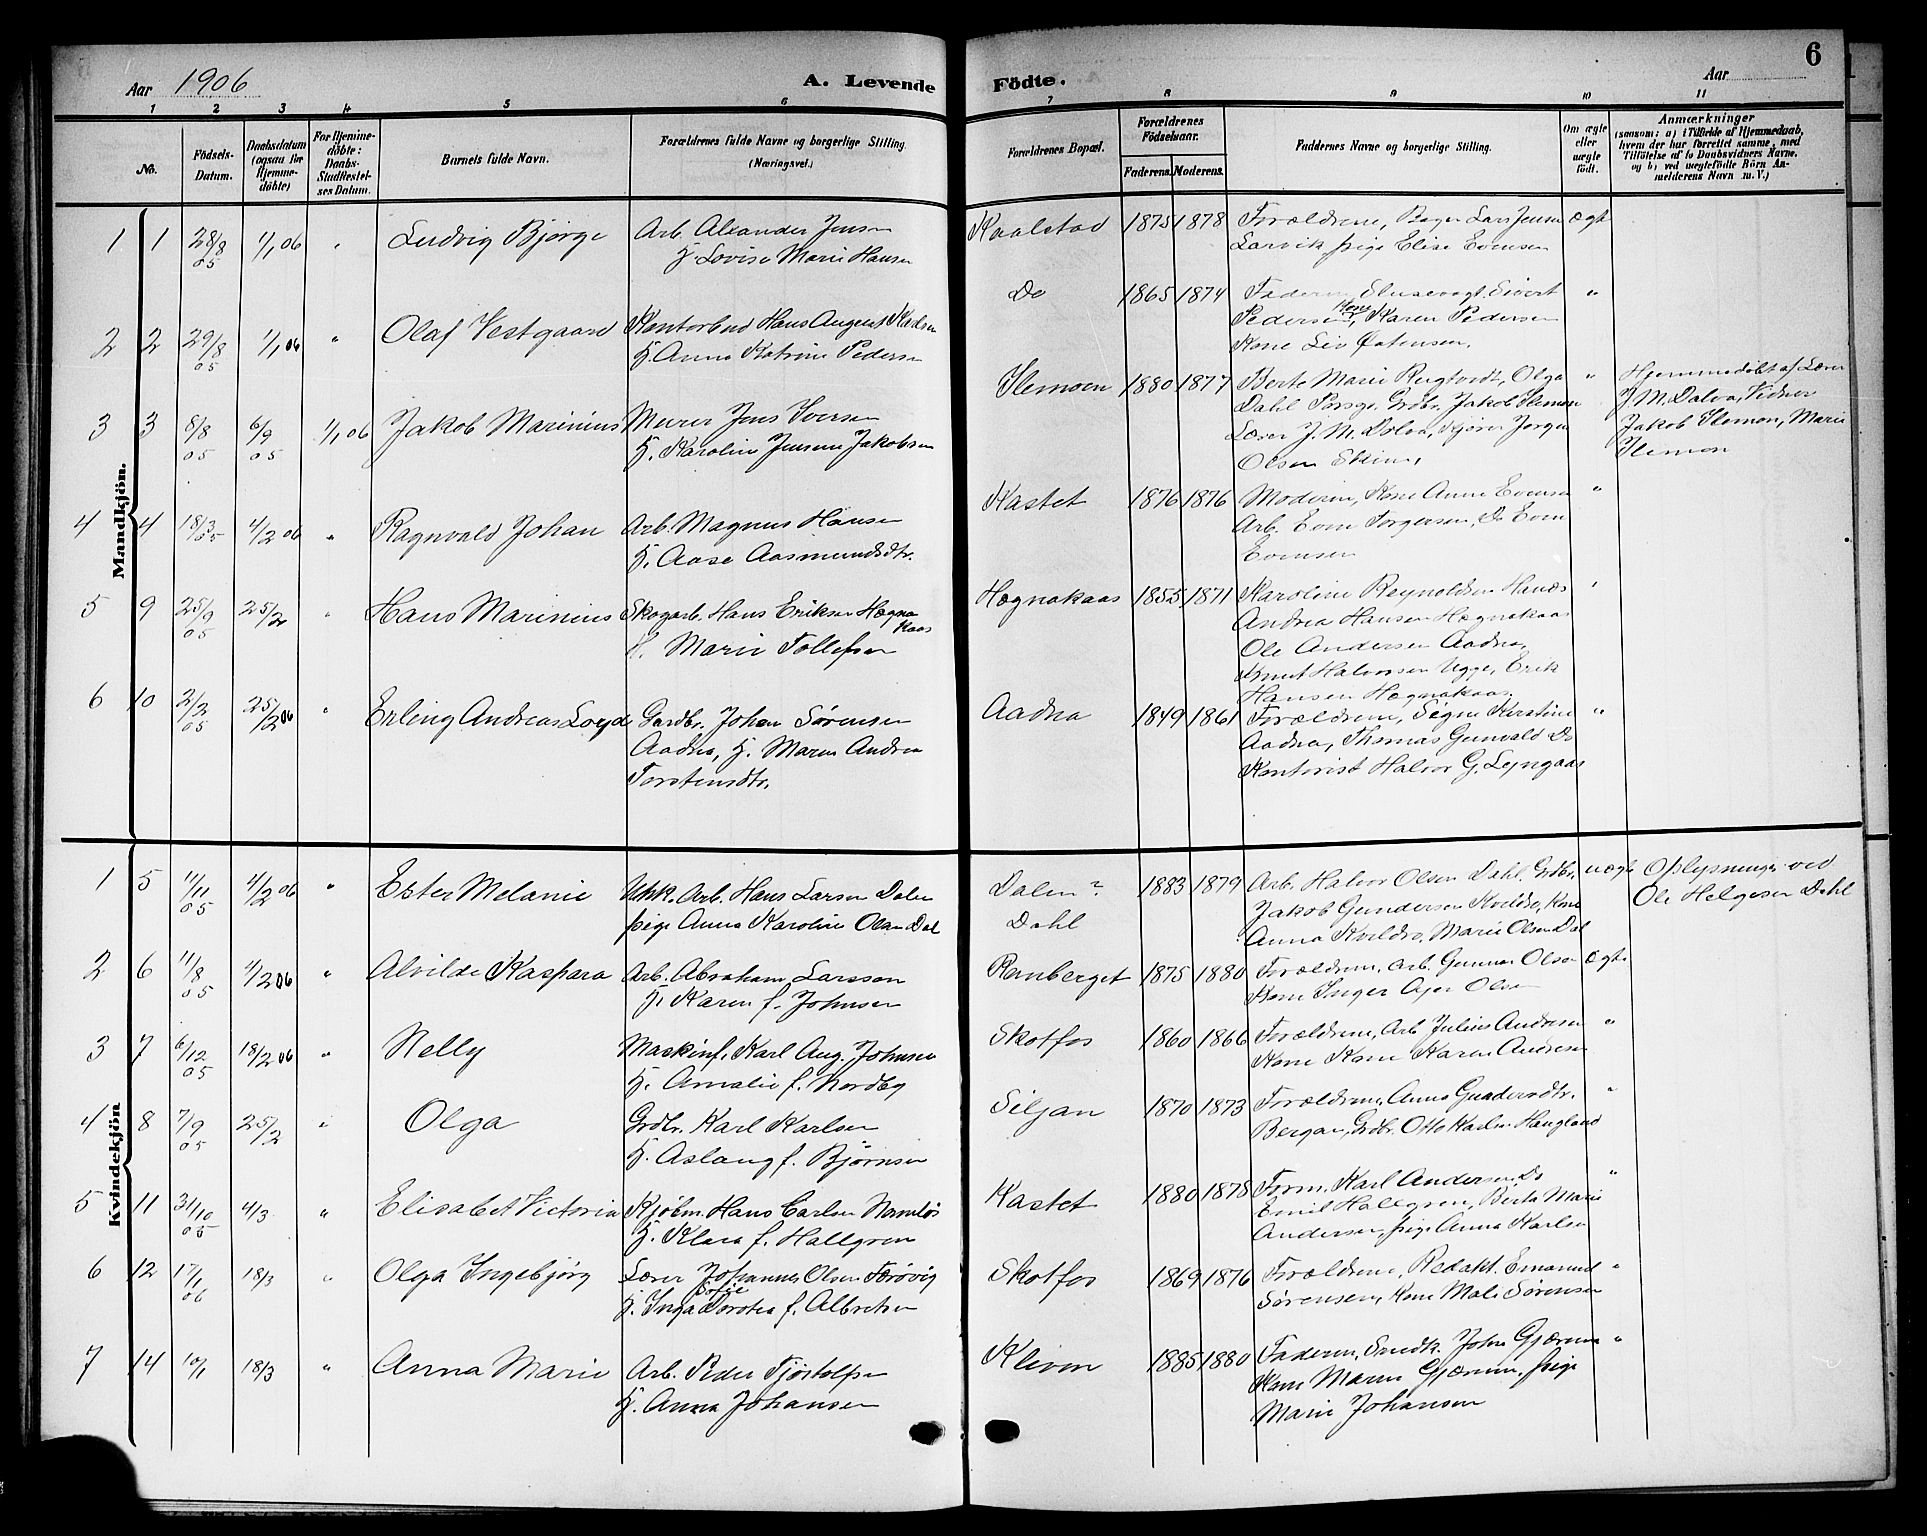 6
Aar 1906
A. Levende Födte.
Aar
1 2 3 4 5 6 7 8 9 10 11
No.
Födsels-Datum.
Daabsdatum (ogsaa for Hjemme-döbte)
For Hjemme-döbte: Daabs-Stadfæstel-ses Datum.
Barnets fulde Navn.
Forældrenes fulde Navne og borgerlige Stilling. (Næringsvei.)
Forældrenes Bopæl.
Forældrenes Födselsaar.
Faderens. Moderens.
Faddernes Navne og borgerlige Stilling.
Om ægte eller uægte födt.
Anmærkninger
(saasom: a) i Tilfælde af Hjemmedaab, hvem der har forrettet samme, med Tilföielse af to Daabsvidners Navne, og b) ved uægtefödte Börn An-melderens Navn m. V.)
Mandkjön.
1 1 28/8 05 1/1 06 " Ludvig Bjørge Arb. Alexander Jensen
H. Lovise Marie Hansen
Kaalstad 1875 1878 Forældrene, Bager Lars Jensen ægte
Larvik, pige Elise Evensen
2 2 29/8 05 1/1 06 " Olaf Vestgaard Kontorbud Hans August Karlsen
H. Anna Katrine Pedersen
Do 1865 1874 Faderen, Slusevogt Sivert "
Pedersen, Kone Karen Pedersen
Kone Liv
3 3 8/8 05 6/9 05 1/1 06 Jakob Marinius Murer Jens Iversen
H. Karoline Jensine Jakobsen
Slemoen 1880 1877 Berte Marie Rugtvedt, Olga "
Dahl Porsgr. Grdbr. Jakob Slemoen
Lærer J. M. Dalva, Kjører Jørgen
Olsen
Hjemmedøbt af Lærer
J. M. Dalva, Vidner
Jakob Slemoen, Marie
Slemoen
4 4 18/3 05 4/2 06 " Ragnvald Johan Arb. Magnus Hansen
H. Aase Aasmundsdtr.
Kastet 1876 1876 Moderen, Kone Anne Evensen "
Arb. Even Torgersen, Do Even
Evensen
5 9 25/9 05 25/2 " Hans Marinius Skogarb. Hans Eriksen Høgnakaas
H. Marie Tollefsen
Høgnakaas 1855 1871 Karoline Reynoldsen "
Andrea Hansen Høgnakaas
Ole Andersen Aadna,
Knut Halvorsen Ugge, Erik
Hansen Høgnakaas.
6 10 2/2 05 25/2 06 " Erling Andreas Loyd Gardbr. Johan Sørensen
Aadna, H. Maren Andrea
Torstensdtr.
Aadna 1849 1861 Forældrene, Signe Kirstine "
Aadna, Thomas Gunvald Do
Kontorist Halvor G. Lyngaas
Kvindekjön
1 5 11/11 05 4/2 06 " Ester Melanie Arb. Hans Larsen Dalen
pige Anna Karoline Olsen Dal
Dalen?
Dahl 1883 1879 Arb. Halvor Olsen Dahl, Grdbr. uægte
Jakob Gundersen Kvildro, Kone
Anna Kvildro, Marie Olsen Dal
Oplysninger ved
Ole Helgesen Dahl
2 6 11/8 05 4/2 06 " Alvilde Kaspara Arb. Abraham Larsson
H. Karen f. Johnsen
Ramberget 1875 1880 Forældrene, Arb. Gunnar Olsen ægte
Kone Inger Olsen
3 7 6/12 05 18/2 06 " Nelly Maskinf. Karl Aug. Johnsen
H. Amalie f. Nordby
Skotfos 1860 1866 Forældrene, Arb. Julius Andresen "
Kone Kone Karen Andresen
4 8 7/9 05 25/2 " Olga Grdbr. Karl Karlsen
H. Aslaug f. Bjørnsen
Siljan 1870 1873 Forældrene, Anna Gundersdtr. "
Bergan, Grdbr. Otto Karlsen Haugland
5 11 31/10 05 4/3 " Elisabet Victoria Kjøbm. Hans Carlsen Namløs
H. Klara f. Hallgren
Kastet 1880 1878 Form. Karl Andersen, Do "
Emil Hallgren, Berte Marie
Andersen, pige Anna Karlsen
6 12 17/1 06 18/3 " Olga Ingebjørg Lærer Johannes Olsen Førøvig
H. Inga Sofie Dorotea f. Albretsen
Skotfos 1869 1876 Forældrene, Redakt. Emanuel "
Sørensen, Kone Mali Sørensen
7 14 10/1 18/3 " Anna Marie Arb. Peder Tjøstolfsen
H. Anna Johansen
Kleven 1885 1880 Faderen, Snedk. John Gjærum "
Kone Maren Gjærum, pige
Marie Johansen